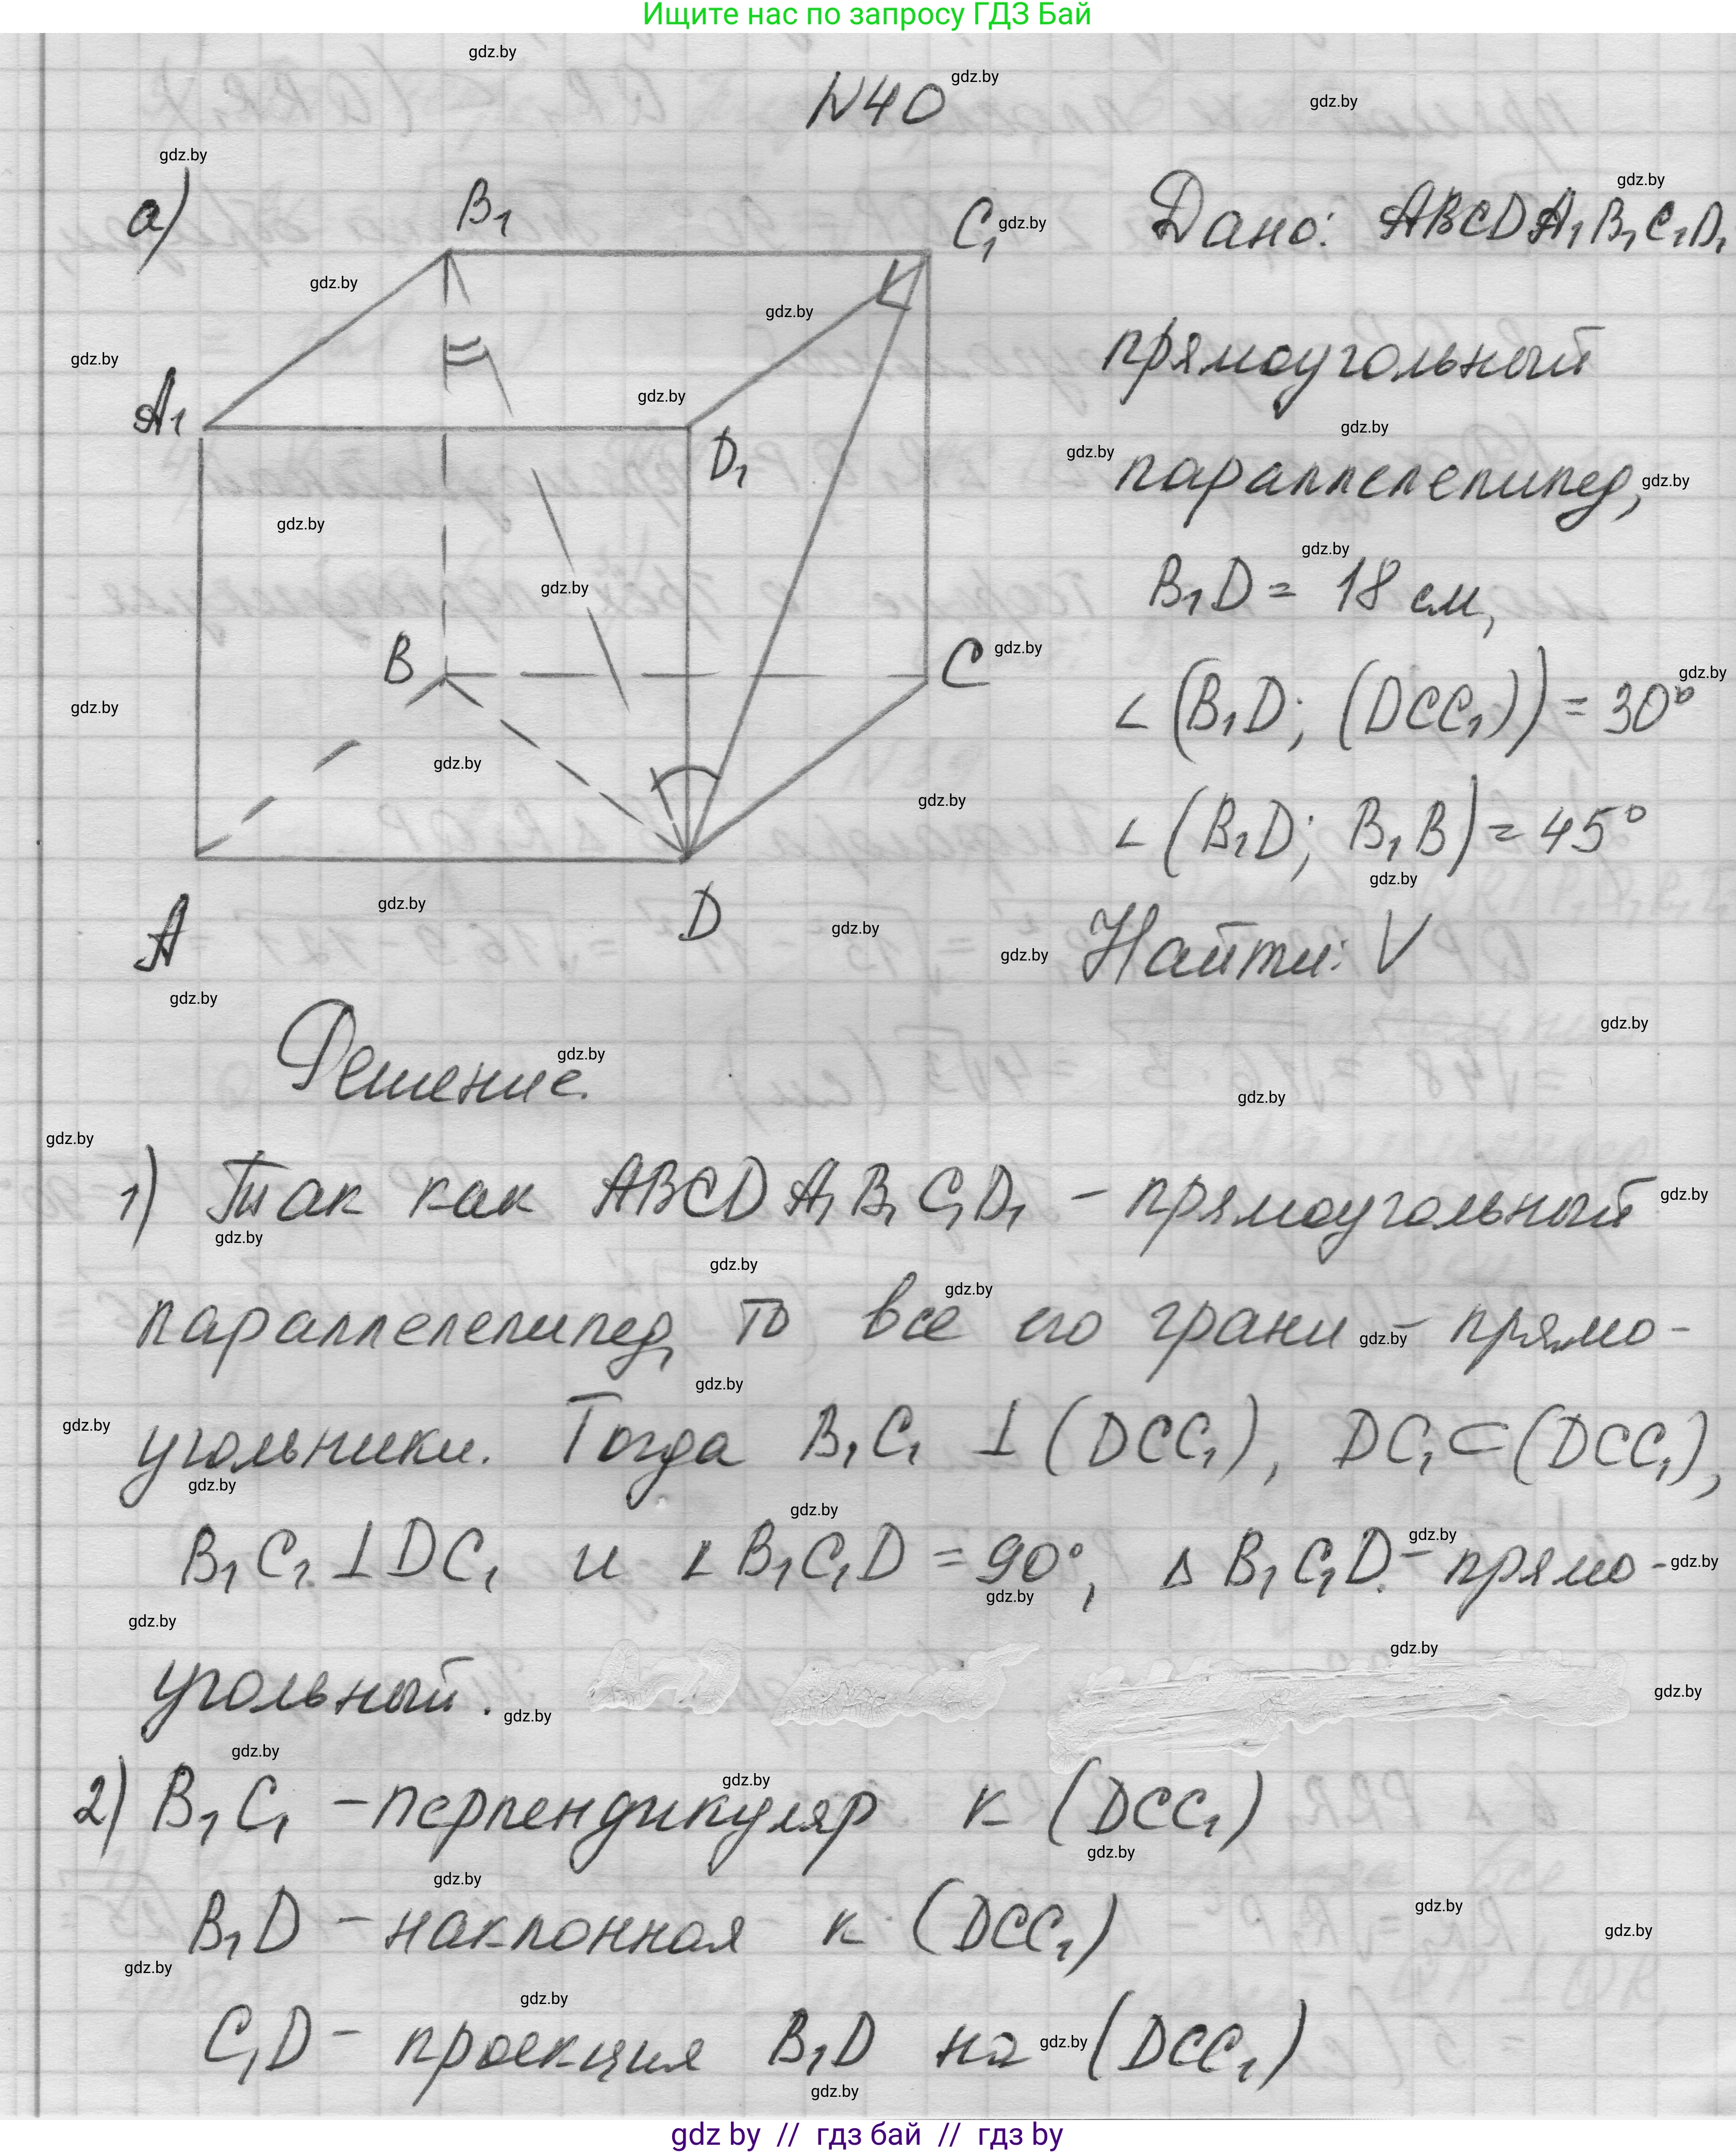 Ищите нас по запросу ГДЗ Бай
N40
а)
B₁
C₁
A₁
D₁
B
C
A
D
Дано: ABCDA₁B₁C₁D₁
прямоугольный
параллелепипед,
B₁D = 18 см,
∠(B₁D; (DCC₁)) = 30°
∠(B₁D; B₁B) = 45°
Найти: V
Решение.
1) Так как ABCDA₁B₁C₁D₁ – прямоугольный
параллелепипед, то все его грани – прямо-
угольники. Тогда B₁C₁ ⊥ (DCC₁), DC₁ ⊂ (DCC₁),
B₁C₁ ⊥ DC₁ и ∠B₁C₁D = 90°, Δ B₁C₁D – прямо-
угольный.
2) B₁C₁ – перпендикуляр к (DCC₁)
B₁D – наклонная к (DCC₁)
C₁D – проекция B₁D на (DCC₁)
gdz by // гдз бай // гдз by